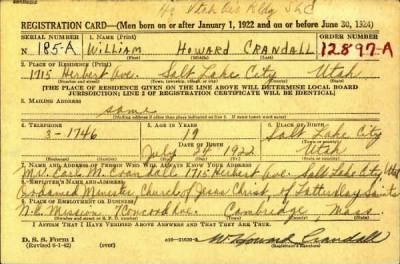 REGISTRATION CARD—(Men born on or after January 1, 1922 and on or before June 30, 1924)
SERIAL NUMBER
ORDER NUMBER
N 185-A
WILLIAM HOWARD CRANDALL
12897-A
(First) (Middle) (Last)
2. PLACE OF RESIDENCE (Print)
1715 Herbert Ave. Salt Lake City Utah
[THE PLACE OF RESIDENCE GIVEN ON THE LINE ABOVE WILL DETERMINE LOCAL BOARD
JURISDICTION; LINE 2 OF REGISTRATION CERTIFICATE WILL BE IDENTICAL]
3. MAILING ADDRESS
same
4. TELEPHONE
5. AGE IN YEARS
6. PLACE OF BIRTH
3-1746
19
Salt Lake City
DATE OF BIRTH
July 1922
Utah
7. NAME AND ADDRESS OF PERSON WHO WILL ALWAYS KNOW YOUR ADDRESS
Mr. Earl M. Crandall, 1715 Herbert Ave. Salt Lake City Utah
8. EMPLOYER'S NAME AND ADDRESS
Ordained Minister, Church of Jesus Christ of Latter Day Saints
9. PLACE OF EMPLOYMENT OR BUSINESS
N.E. Mission 7 Concord Ave. Cambridge, Mass.
I AFFIRM THAT I HAVE VERIFIED ABOVE ANSWERS AND THAT THEY ARE TRUE.
D. S. S. Form 1
(Revised 6-1-42)
(over)
Wm Howard Crandall
(Registrant's signature)